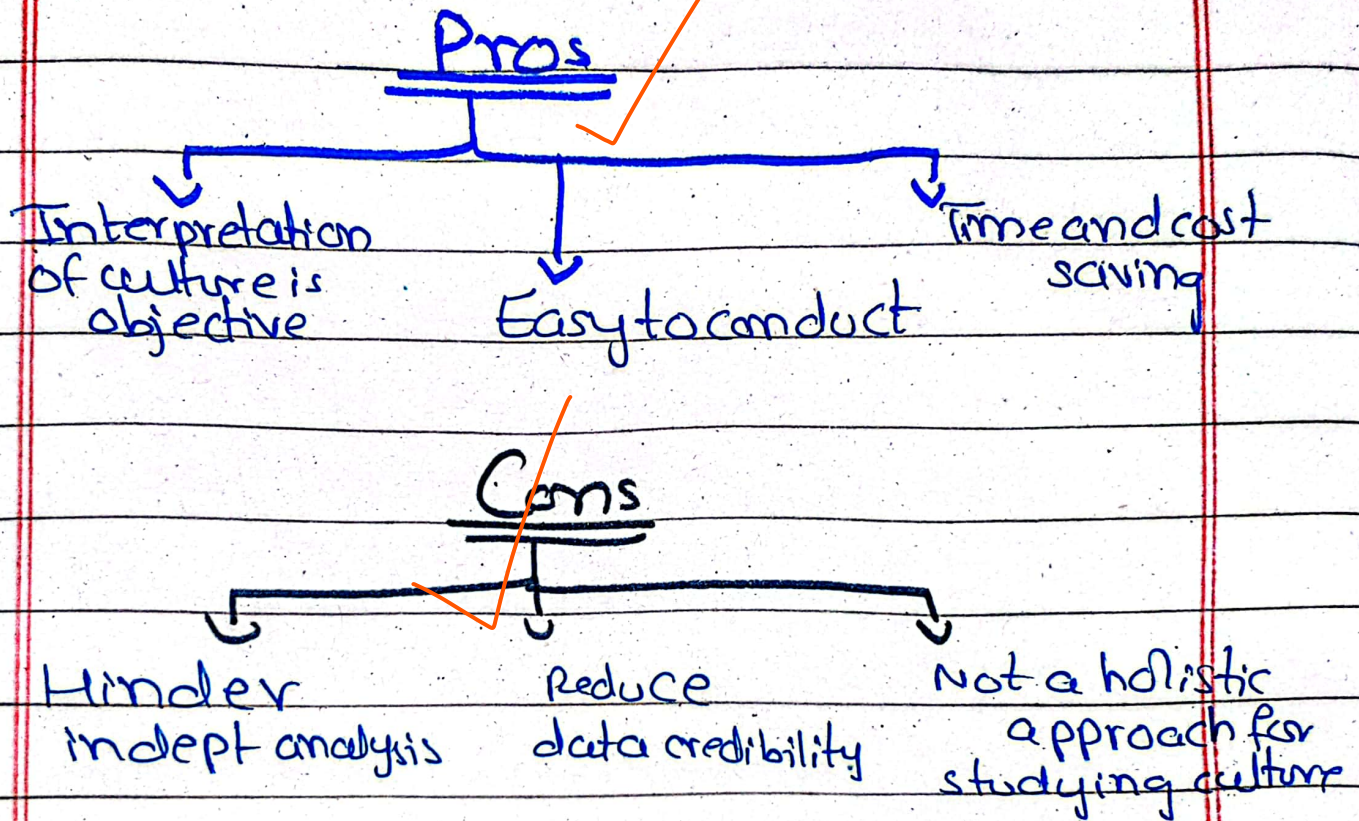 Pros
Interpretation
of culture is
objective
Easy to conduct
Time and cost
saving
Cons
Hinder
indept analysis
Reduce
data credibility
Not a holistic
approach for
studying culture